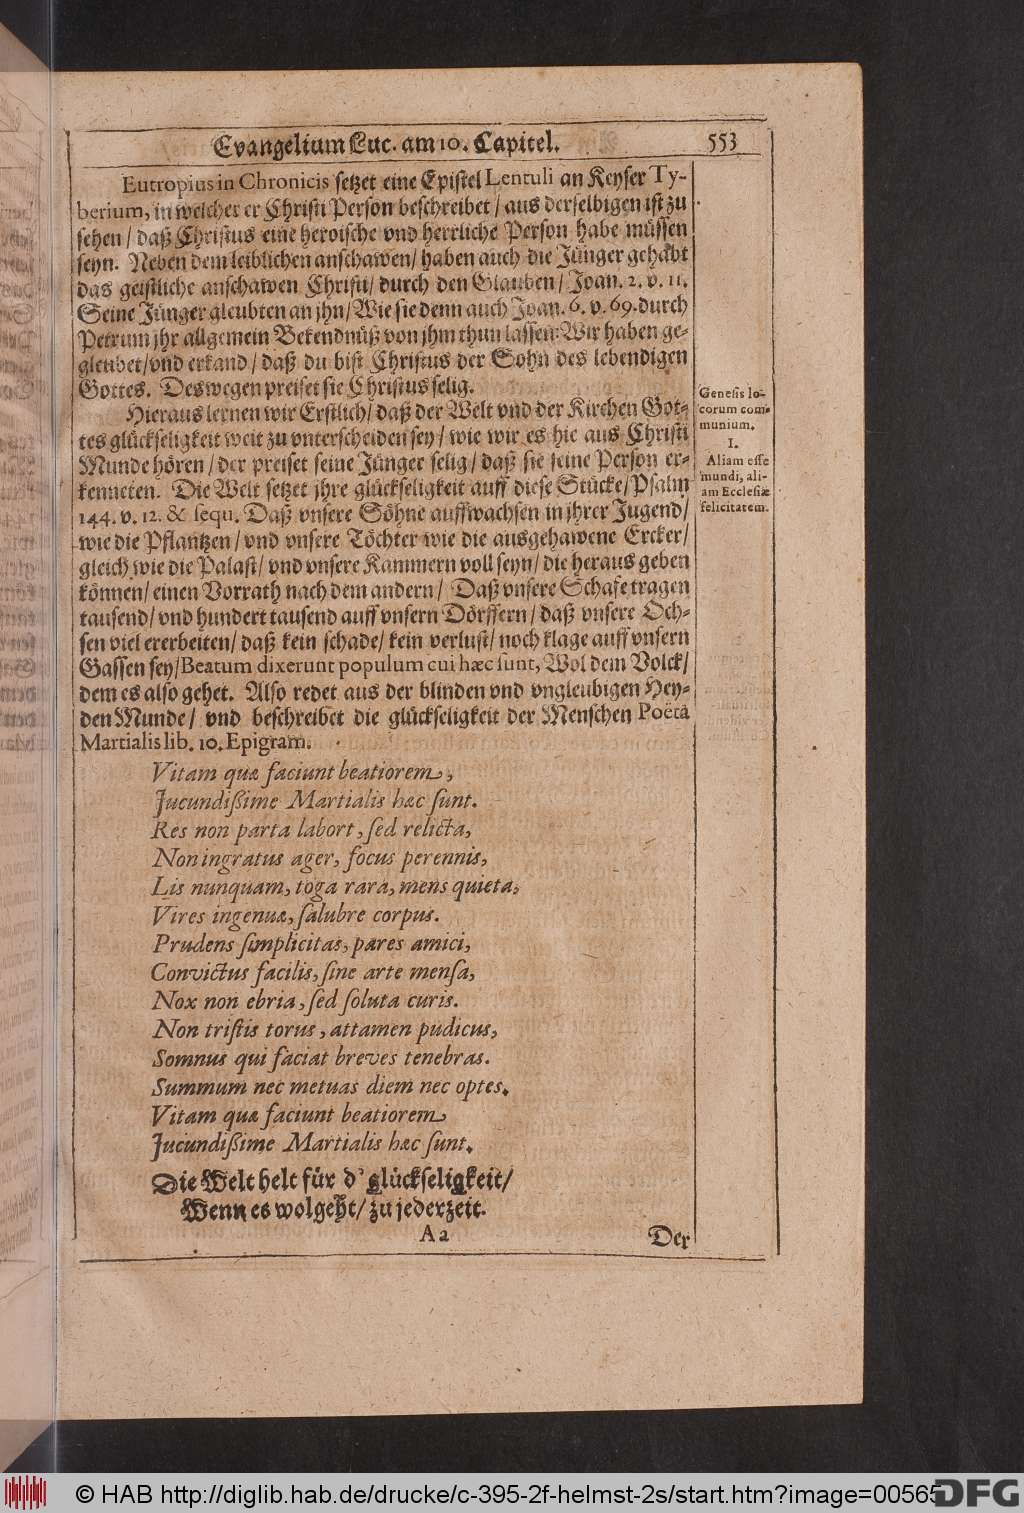 Evangelium Luc. am 10. Capitel. 553
Eutropius in Chronicis setzet eine Epistel Lentuli an Keyser Ty-
berium, in welcher er Christi Person beschreibet / aus derselbigen ist zu
sehen / daß Christus eine heroische vnd herrliche Person habe müssen
seyn. Neben dem leiblichen anschawen / haben auch die Jünger gehabt
das geistliche anschawen Christi / durch den Glauben / Joan. 2. v. 11.
Seine Jünger gleubten an jhn / Wie sie denn auch Joan. 6. v. 69. durch
Petrum jhr allgemein Bekendnüß von jhm thun lassen: Wir haben ge-
gleubet / vnd erkand / daß du bist Christus der Sohn des lebendigen
Gottes. Deswegen preiset sie Christus selig.
Hieraus lernen wir Erstlich / daß der Welt vnd der Kirchen Got-
tes glückseligkeit weit zu vnterscheiden sey / wie wir es hie aus Christi
Munde hören / der preiset seine Jünger selig / daß sie seine Person er-
kenneten. Die Welt setzet jhre glückseligkeit auff diese Stücke / Psalm
144. v. 12. & sequ. Daß vnsere Söhne auffwachsen in jhrer Jugend /
wie die Pflantzen / vnd vnsere Töchter wie die ausgehawene Ercker /
gleich wie die Palast / vnd vnsere Kammern voll seyn / die heraus geben
können / einen Vorrath nach dem andern / Daß vnsere Schafe tragen
tausend / vnd hundert tausend auff vnsern Dörffern / daß vnsere Och-
sen viel ererbeiten / daß kein schade / kein verlust / noch klage auff vnsern
Gassen sey / Beatum dixerunt populum cui hæc sunt, Wol dem Volck /
dem es also gehet. Also redet aus der blinden vnd vngleubigen Hey-
den Munde / vnd beschreibet die glückseligkeit der Menschen Poëta
Martialis lib. 10. Epigram.
Genesis lo-
corum com-
munium.
I.
Aliam esse
mundi, ali-
am Ecclesiæ
felicitatem.
Vitam quæ faciunt beatiorem,
Jucundißime Martialis hæc sunt.
Res non parta labort, sed relicta,
Non ingratus ager, focus perennis,
Lis nunquam, toga rara, mens quieta,
Vires ingenuæ, salubre corpus.
Prudens simplicitas, pares amici,
Convictus facilis, sine arte mensa,
Nox non ebria, sed soluta curis.
Non tristis torus, attamen pudicus,
Somnus qui faciat breves tenebras.
Summum nec metuas diem nec optes.
Vitam quæ faciunt beatiorem
Jucundißime Martialis hæc sunt.
Die Welt helt für d' glückseligkeit /
Wenn es wolgeht / zu jederzeit.
Aa Der
© HAB http://diglib.hab.de/drucke/c-395-2f-helmst-2s/start.htm?image=00565
DFG